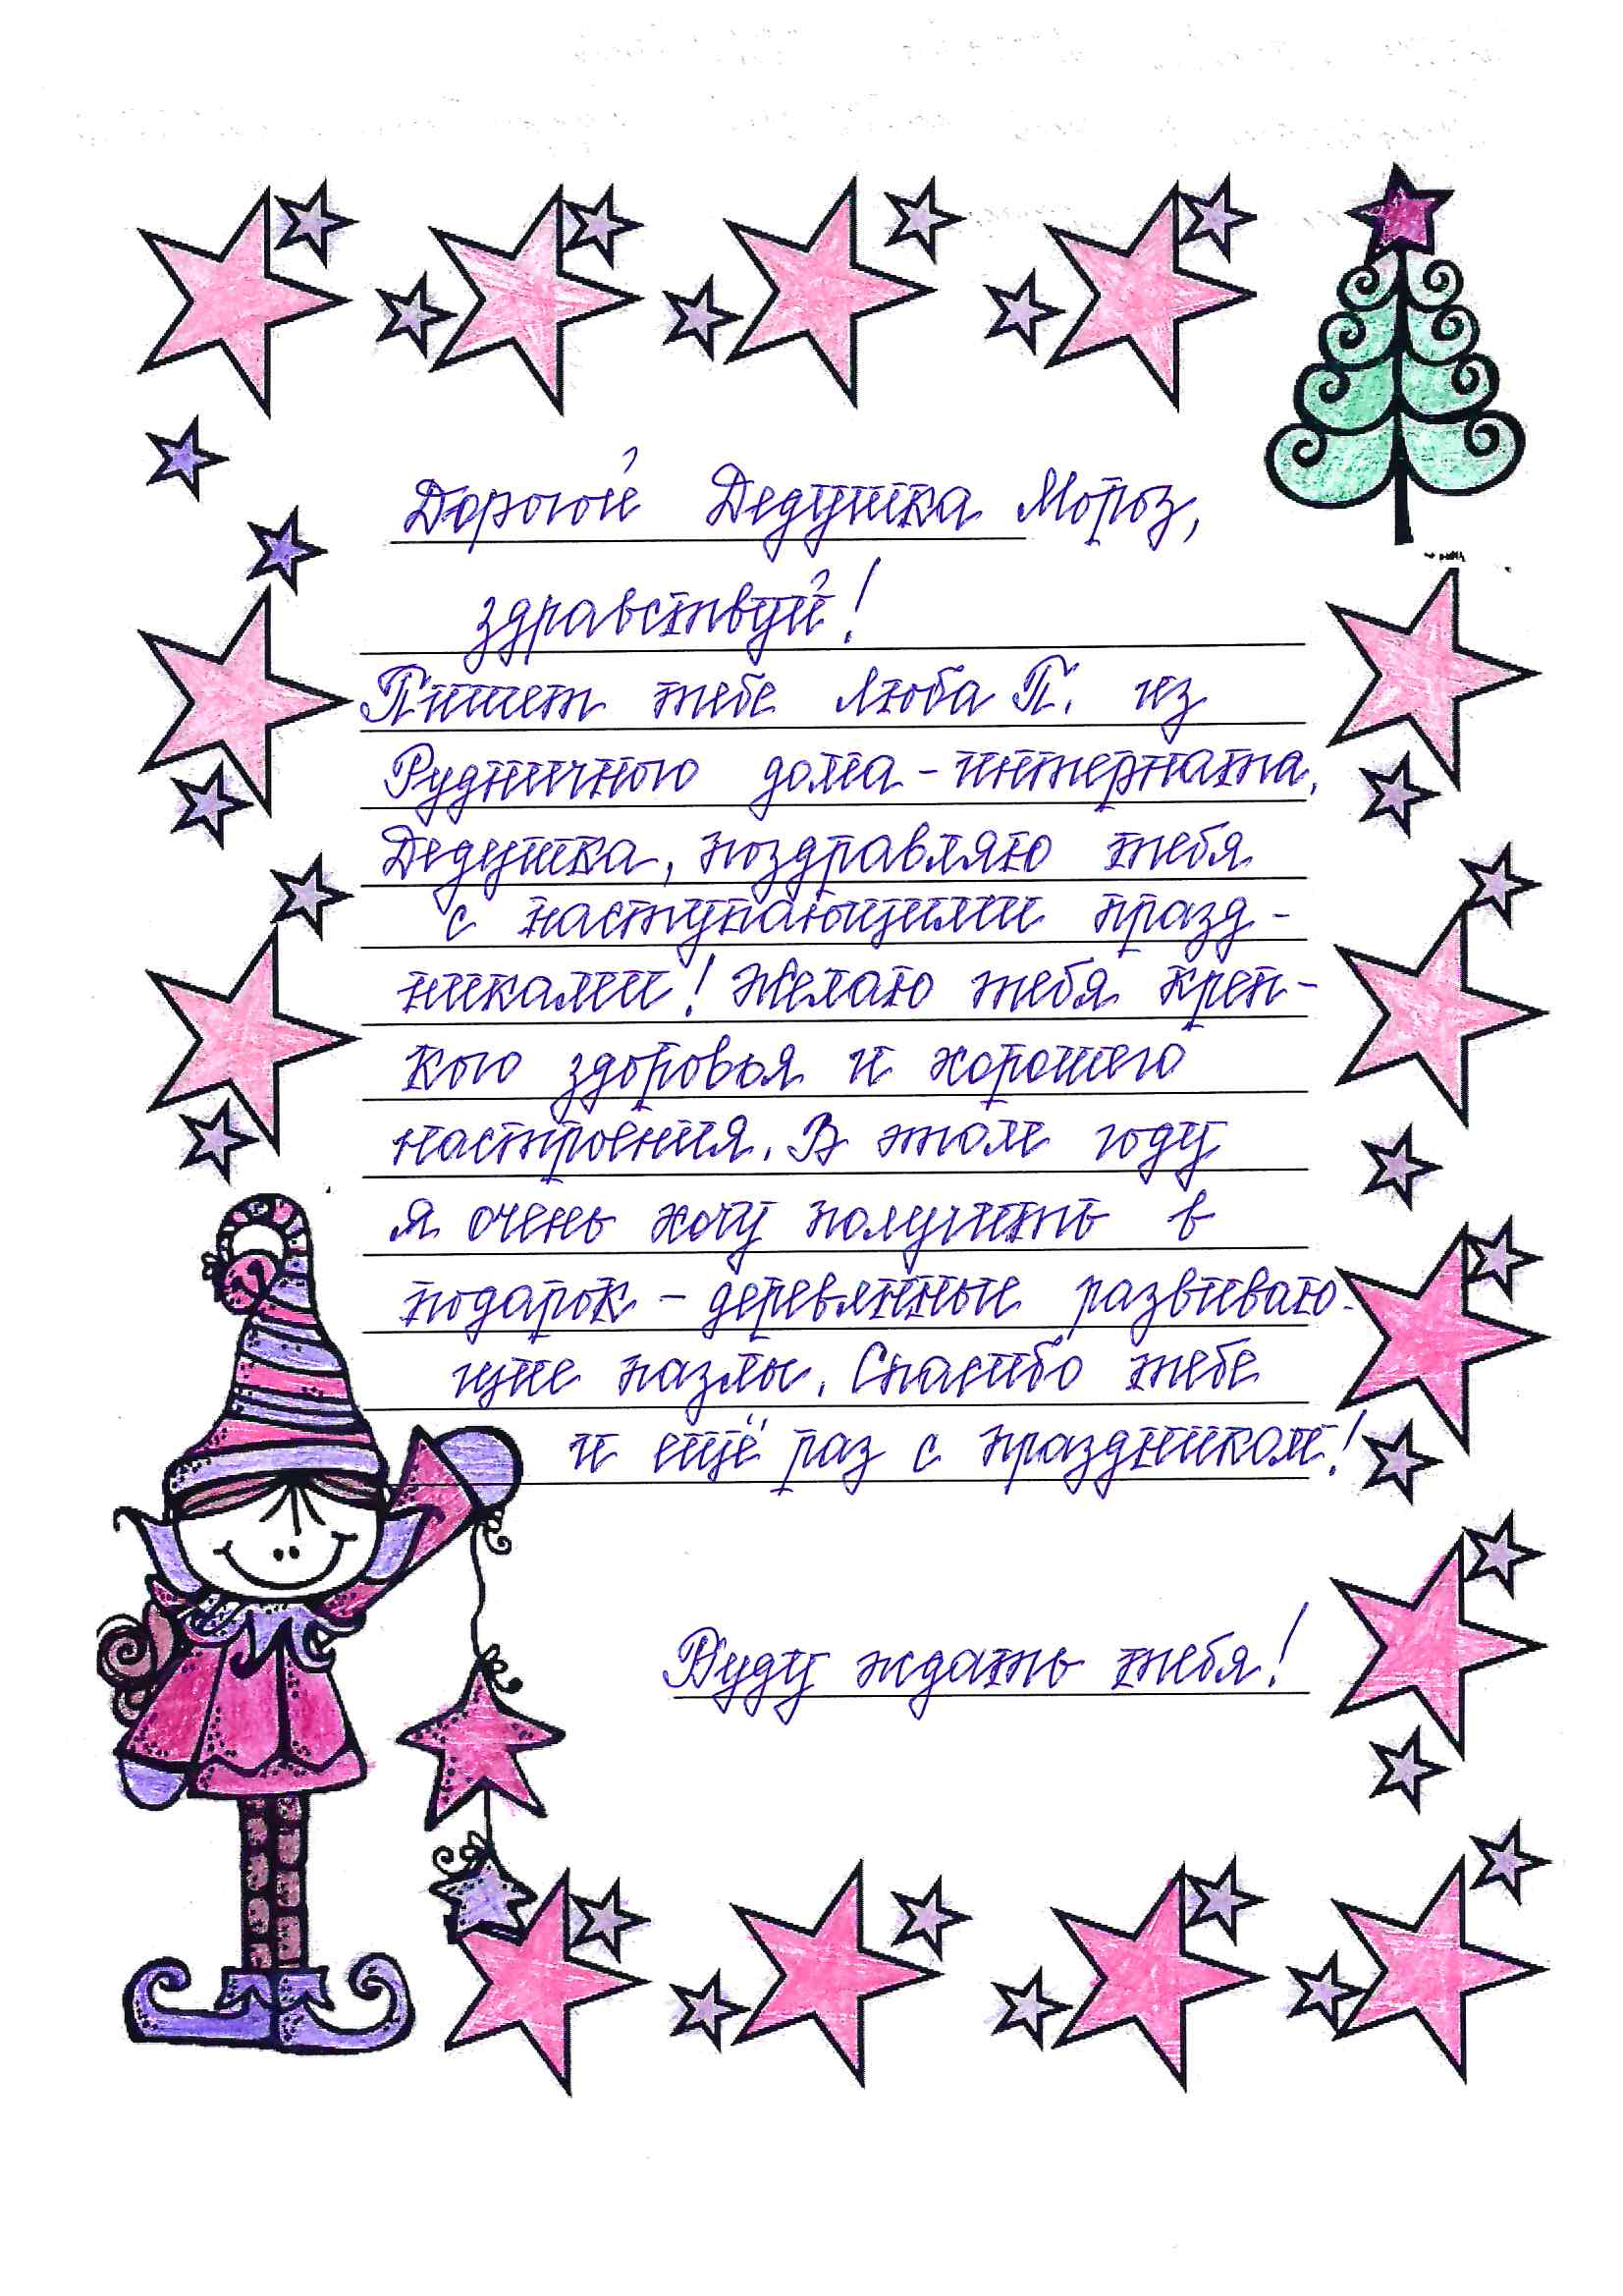 Дорогой Дедушка Мороз,
здравствуй!
Пишет тебе Люба П. из
Рудничного дома-интерната.
Дедушка, поздравляю тебя
с наступающими празд-
никами! Желаю тебя креп-
кого здоровья и хорошего
настроения. В этом году
я очень хочу получить в
подарок - деревянные развиваю-
щие пазлы. Спасибо тебе
и ещё раз с праздником!
Буду ждать тебя!